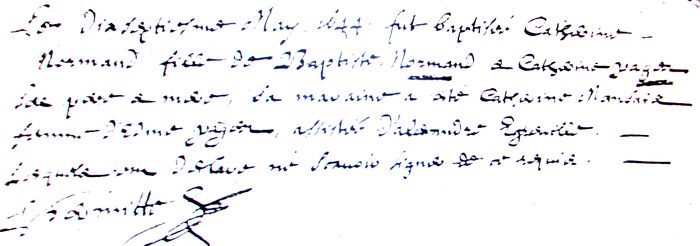 Le Dixseptiesme May 1644 fut baptisée Catherine
Normand fille de Baptiste Normand & Catherine pager
ses pere & mere, La maraine a esté Catherine
femme d'Edme pager, assistée d'alexandre
Lesquels ont déclaré ne scavoir signer de ce requis.